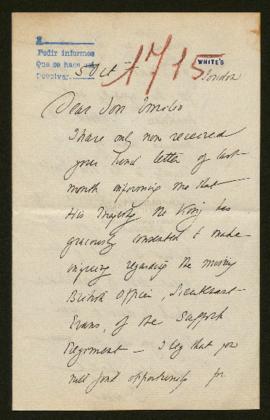 Pedir informes
Que se hace
Devolver
1715
WHITE'S
5 Oct
London
Dear Don Emilio
I have only now received
your kind letter of last
month informing me that
His Majesty the King has
graciously consented to make
inquiry regarding the missing
British Officer, Lieutenant
Evans, of the Suffolk
Regiment — I beg that you
will find opportunity for